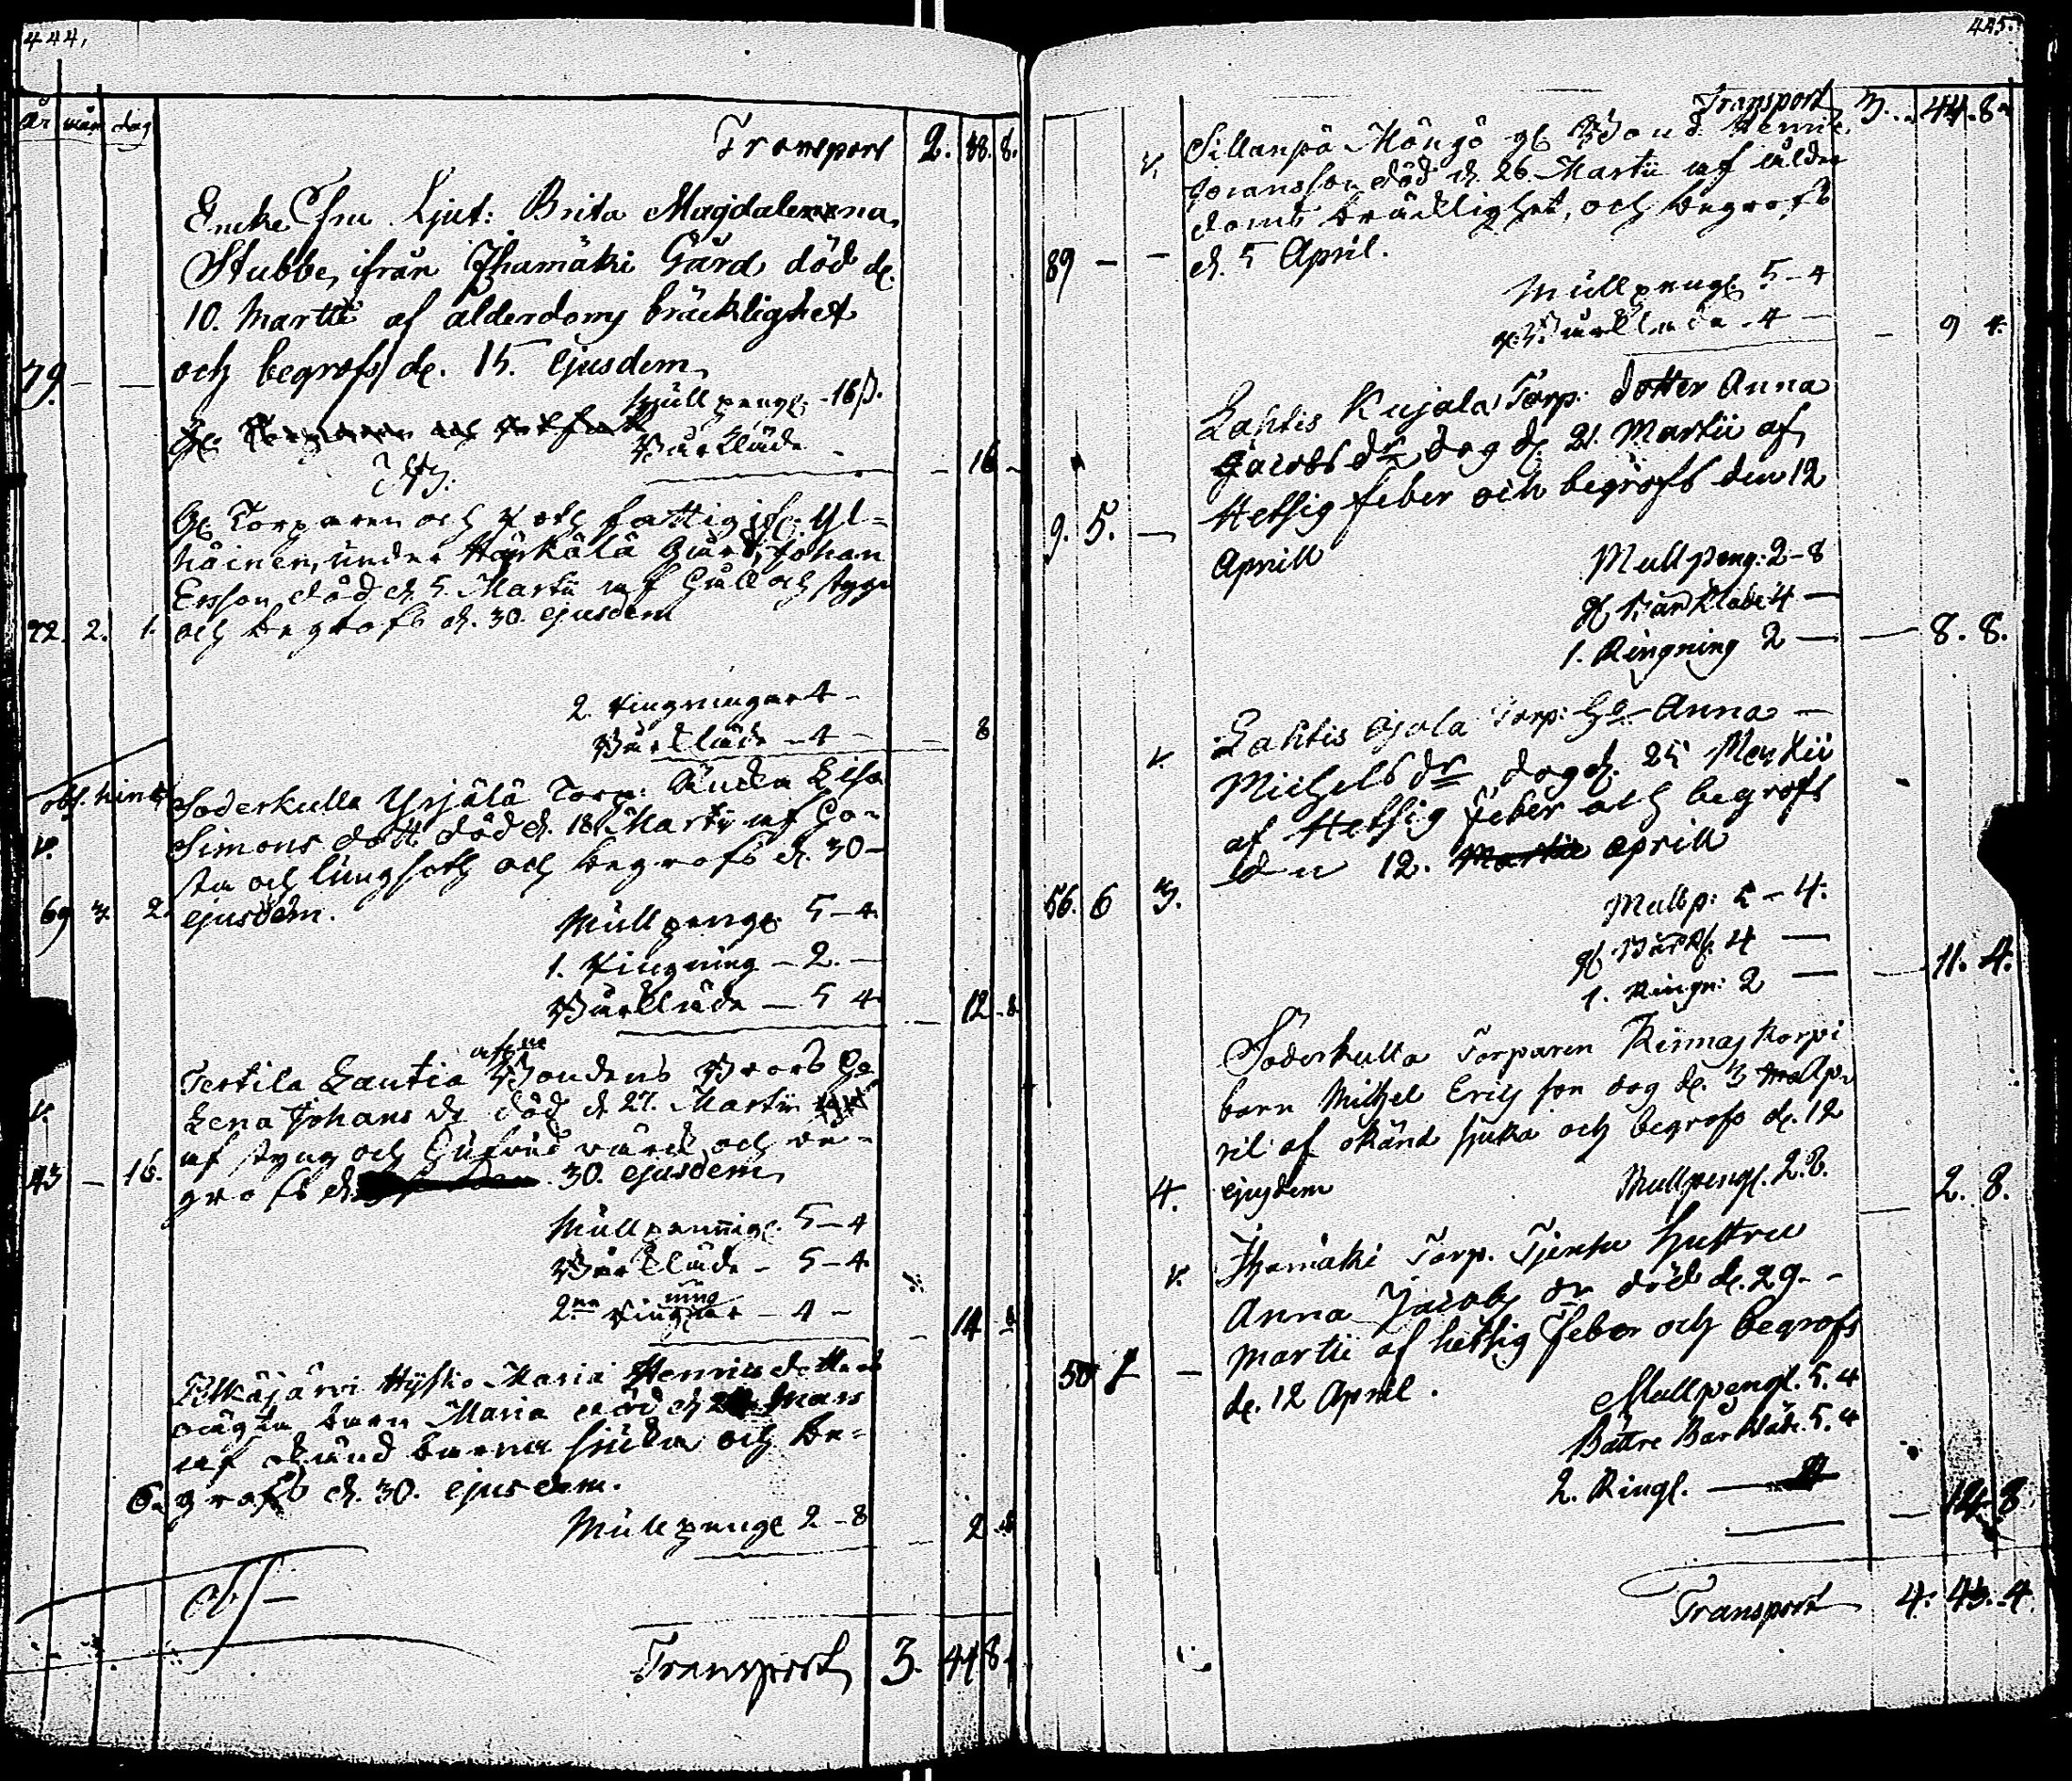 444.
år mån dag
Transport 2. 38. 8.
Enke Fru Ljut: Brita Magdalena
Stubbe, ifrån Ihamäki Gård död d.
10. Martii af ålderdoms bräcklighet
79. — — och begrofs d. 15. ejusdem
Mull peng. - 16 s.
Bårkläde - — 16 —
Gl. Torparen och Roth fattig
näinen, under Härkälä Gård, Johan
Ersson död d. 5. Martii af håll och styng
72. 2. 1. och begrofs d. 30. ejusdem
2. Ringningar 4 —
Bårkläde — 4 — — 8
obs.
Söderkulla Yrjälä Torp: Änka Lisa
v. Simons dott död d. 18 Martii af ho-
sta och lungsoth och begrofs d. 30-
69 3. 2. ejusdem.
Mullpeng. 5 - 4.
1. Ringning — 2. —
Bårkläde — 5 4 — 12 - 8
Tertila Lautia Bondens Brors Ho
v. Lena Johans dr död d. 27. Martii
af styng och hufvud värk och be-
43 — 16. grofs d. 30. ejusdem
Mullpenning. 5 - 4
Bårkläde - 5 - 4
2ne Ringning — 4 — — 14 - 8
Pitkäjärvi Hyski. Maria Henricsdotters
oägta barn Maria död d. Mars
af okänd barna sjuka och be-
6. grofs d. 30. ejusdem.
Mullpeng 2 - 8 — 2 - 8
obs —
Transport 3. 44 8.
445.
Transport 3. 44. 8.
v. Sillanpä Mängö gl. Bond. Henric
Joransson död d. 26. Martii af ålder
doms bräcklighet, och begrofs
89 — — d. 5 April.
Mullpeng 5 - 4
gl. Bårkläde - 4 — — 9 4.
Lahtis Kujala Torp: Dotter Anna
Jacobs dr dog d. 21. Martii af
Hetsig feber och begrofs den 12
9. 5. — Aprill
Mullpeng: 2 - 8
gl. Bårkläde 4 —
1. Ringning 2 — — 8. 8.
Lahtis Ojala Torp: Ho Anna —
v. Michels dr dog d. 25 Martii
af Hetsig feber och begrofs
den 12. Martii Aprill
56. 6 3.
Mullp: 5 - 4.
gl. Bårkl. 4 —
1. Ringn: 2 — — 11. 4.
Söderkulla Torparen Rinnaskorpi
barn Michel Ericsson dog d. 3 Ap-
ril af okänd sjuka och begrofs d. 12
4. ejusdem Mullpeng. 2. 8. — 2. 8.
v. Ihamäki Torp. Tjensu hustru
Anna Jacobs dr död d. 29. -
Martii af hetsig feber och begrofs
50 — d. 12 April.
Mullpeng. 5. 4
Bättre Bårkläde. 5. 4
2. Ringl. — 4 — 14. 8
Transport 4. 43. 4.